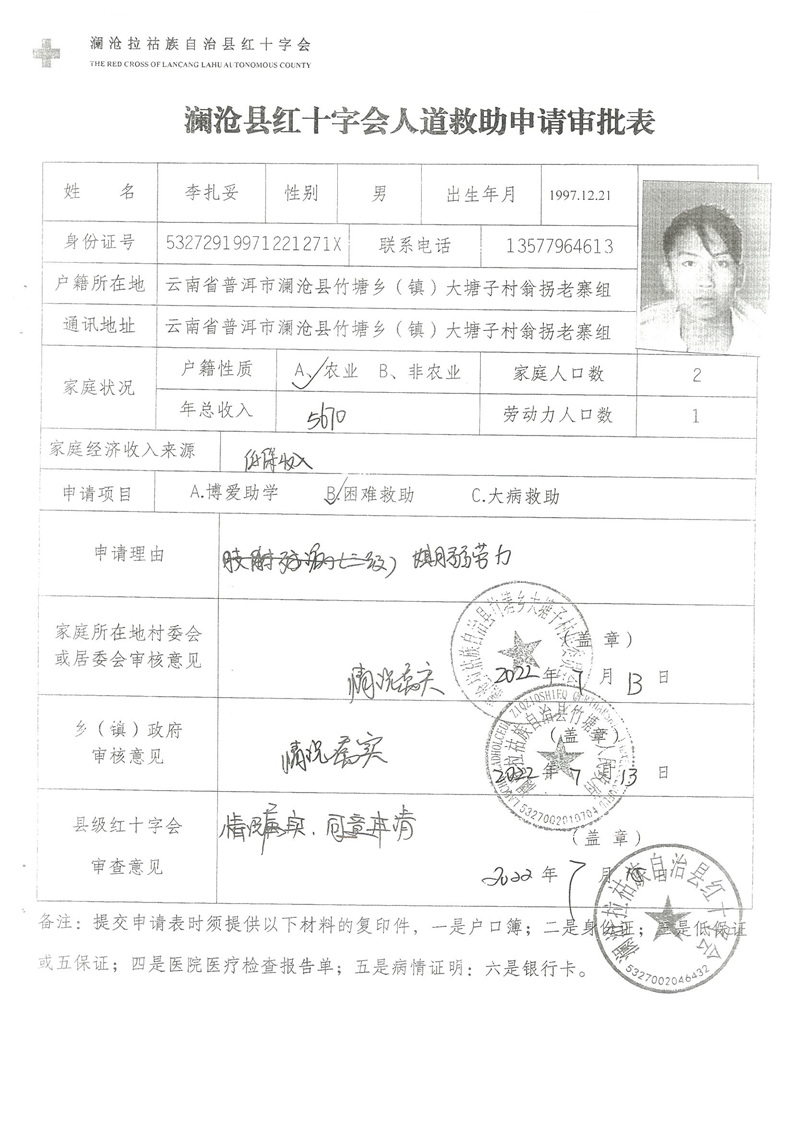 澜沧拉祜族自治县红十字会
THE RED CROSS OF LANCANG LAHU AUTONOMOUS COUNTY
澜沧县红十字会人道救助申请审批表
姓 名 李扎妥 性别 男 出生年月 1997.12.21
身份证号 53272919971221271X 联系电话 13577964613
户籍所在地 云南省普洱市澜沧县竹塘乡（镇）大塘子村翁拐老寨组
通讯地址 云南省普洱市澜沧县竹塘乡（镇）大塘子村翁拐老寨组
家庭状况 户籍性质 A、农业 B、非农业 家庭人口数 2
年总收入 5670 劳动力人口数 1
家庭经济收入来源 低保收入
申请项目 A.博爱助学 B.困难救助 C.大病救助
申请理由 (二级) 劳力
家庭所在地村委会
或居委会审核意见
情况属实
（盖 章）
2022 年 7 月 13 日
乡（镇）政府
审核意见
情况属实
（盖 章）
2022 年 7 月 13 日
县级红十字会
审查意见
情况属实，同意申请
（盖 章）
2022 年 7 月
澜沧拉祜族自治县红十字会
5327002046432
5327002019704
备注：提交申请表时须提供以下材料的复印件，一是户口簿；二是身份证；三是低保证
或五保证；四是医院医疗检查报告单；五是病情证明：六是银行卡。